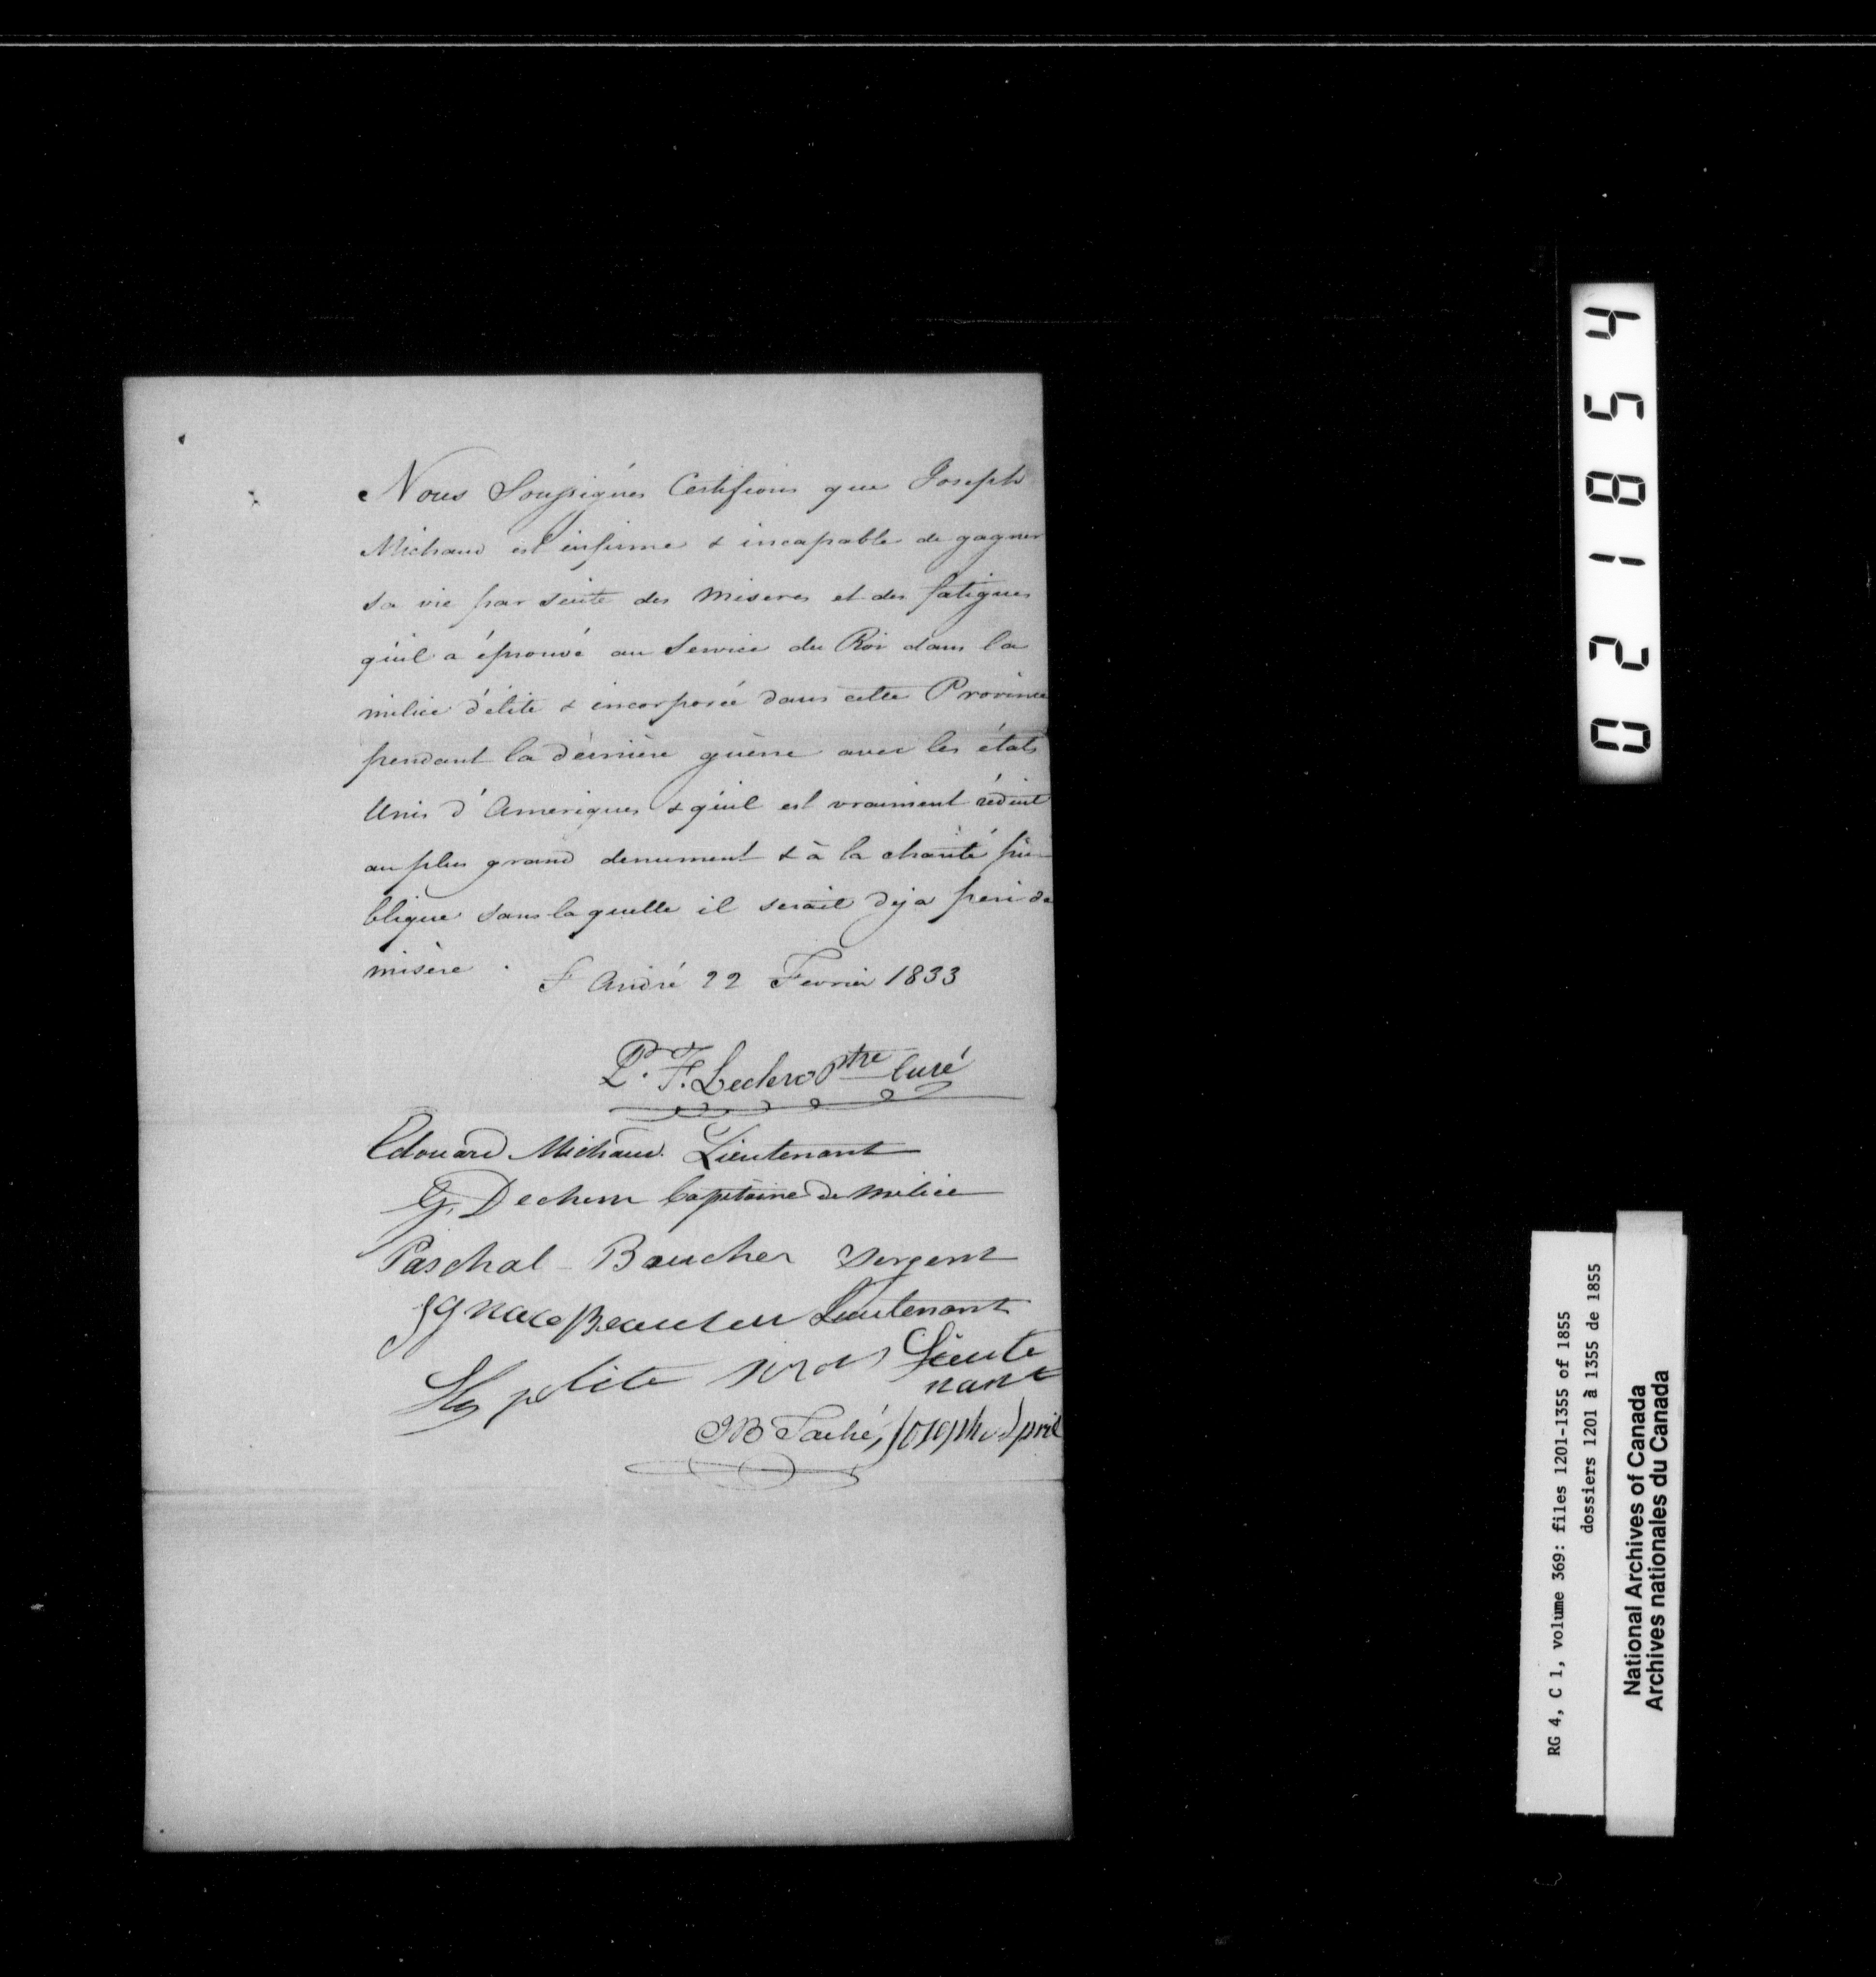 Nous Soussignés Certifions que Joseph
Michaud est infirme & incapable de gagner
sa vie par suite des miseres et des fatigues
qu'il a éprouvé au Service du Roi dans la
milice d'élite & incorporée dans cette Province
pendant la dernière guèrre avec les états
Unis d'Ameriques & qu'il est vraiment réduit
au plus grand denument & à la charité pu-
blique sans laquelle il serait deja peri de
misère.
St André 22 Fevrier 1833
P. F. Leclerc Ptre Curé
Edouard Michaud Lieutenant
G. Dechene Capitaine de milice
Paschal Boucher Sergent
Ignace Beaulieu Lieutenant
Hypolite Sirois Lieute
nant
JB Taché, Joseph
0 2 1 8 5 4
RG 4, C 1, volume 369: files 1201-1355 of 1855
dossiers 1201 à 1355 de 1855
National Archives of Canada
Archives nationales du Canada